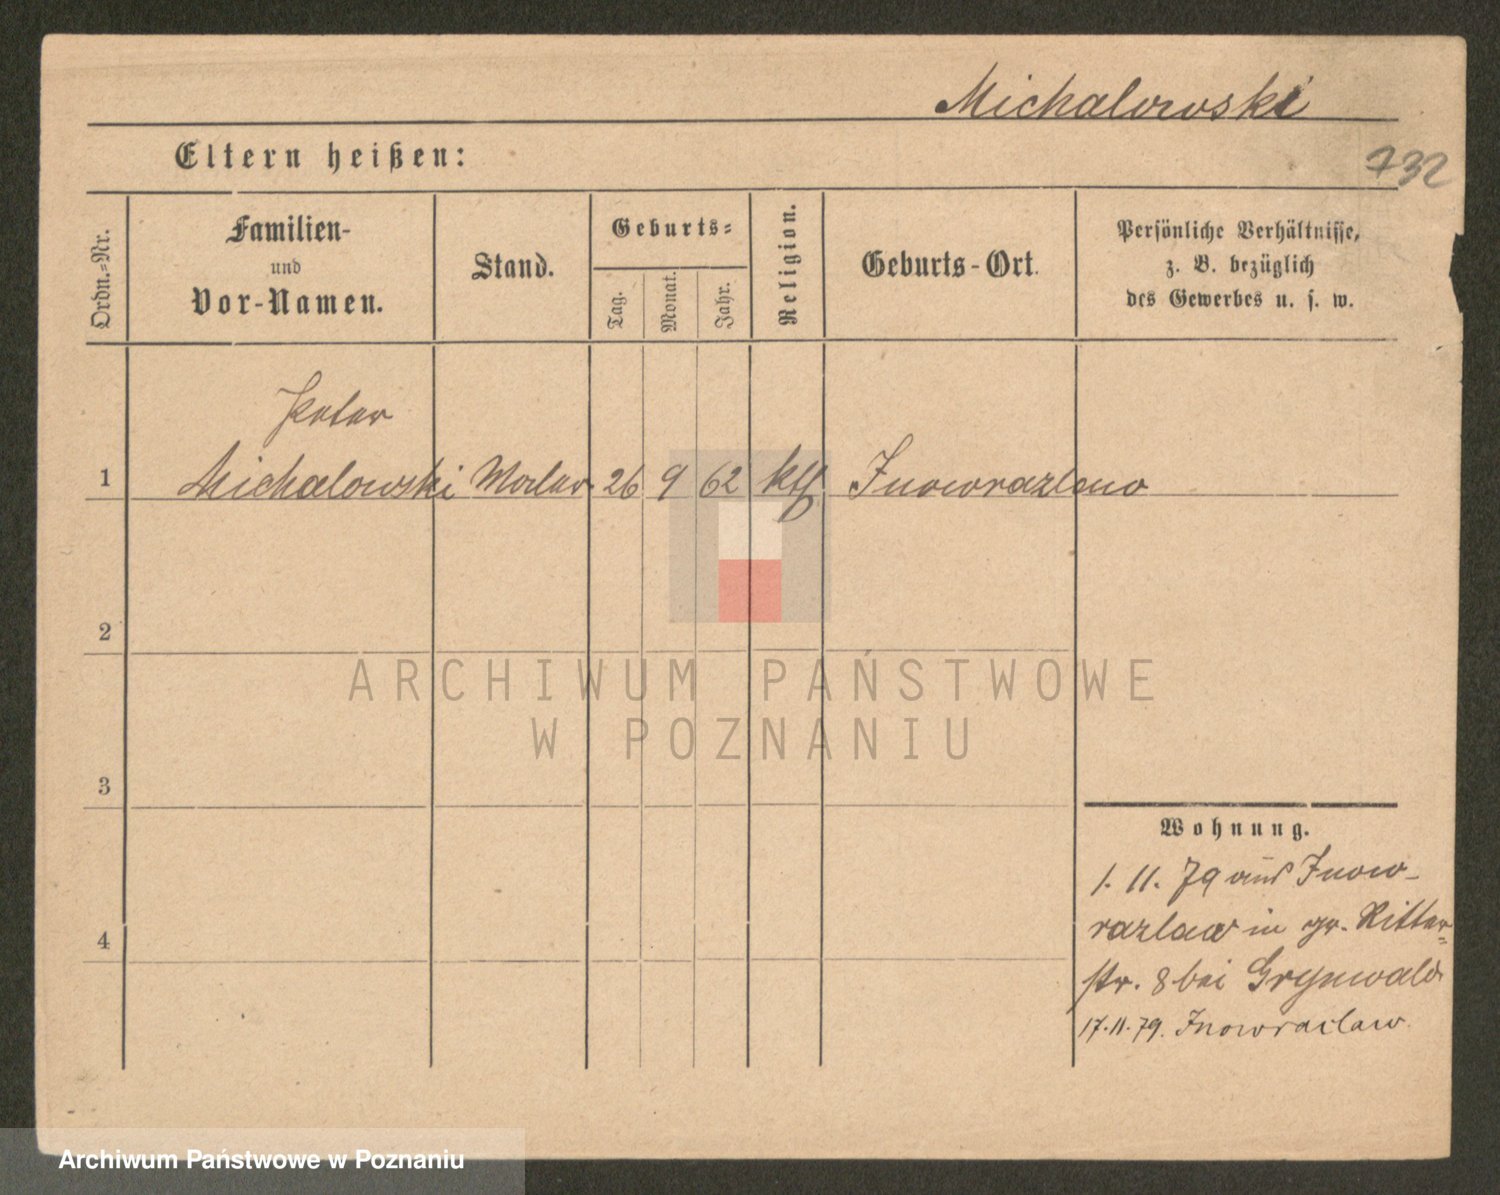 Michalowski
732
Eltern heißen:
Ordn.=Nr.
Familien-
und
Vor-Namen.
Stand.
Geburts=
Tag.
Monat.
Jahr.
Religion.
Geburts-Ort.
Persönliche Verhältnisse,
z. B. bezüglich
des Gewerbes u. s. w.
Peter
1 Michalowski Maler 26 9 62 kth Inowrazlaw
2
3
4
ARCHIWUM PAŃSTWOWE
W POZNANIU
Wohnung.
1. 11. 79 aus Inow-
razlaw in gr. Ritter=
str. 8 bei Grynwald
17.11.79. Inowraclaw.
Archiwum Państwowe w Poznaniu